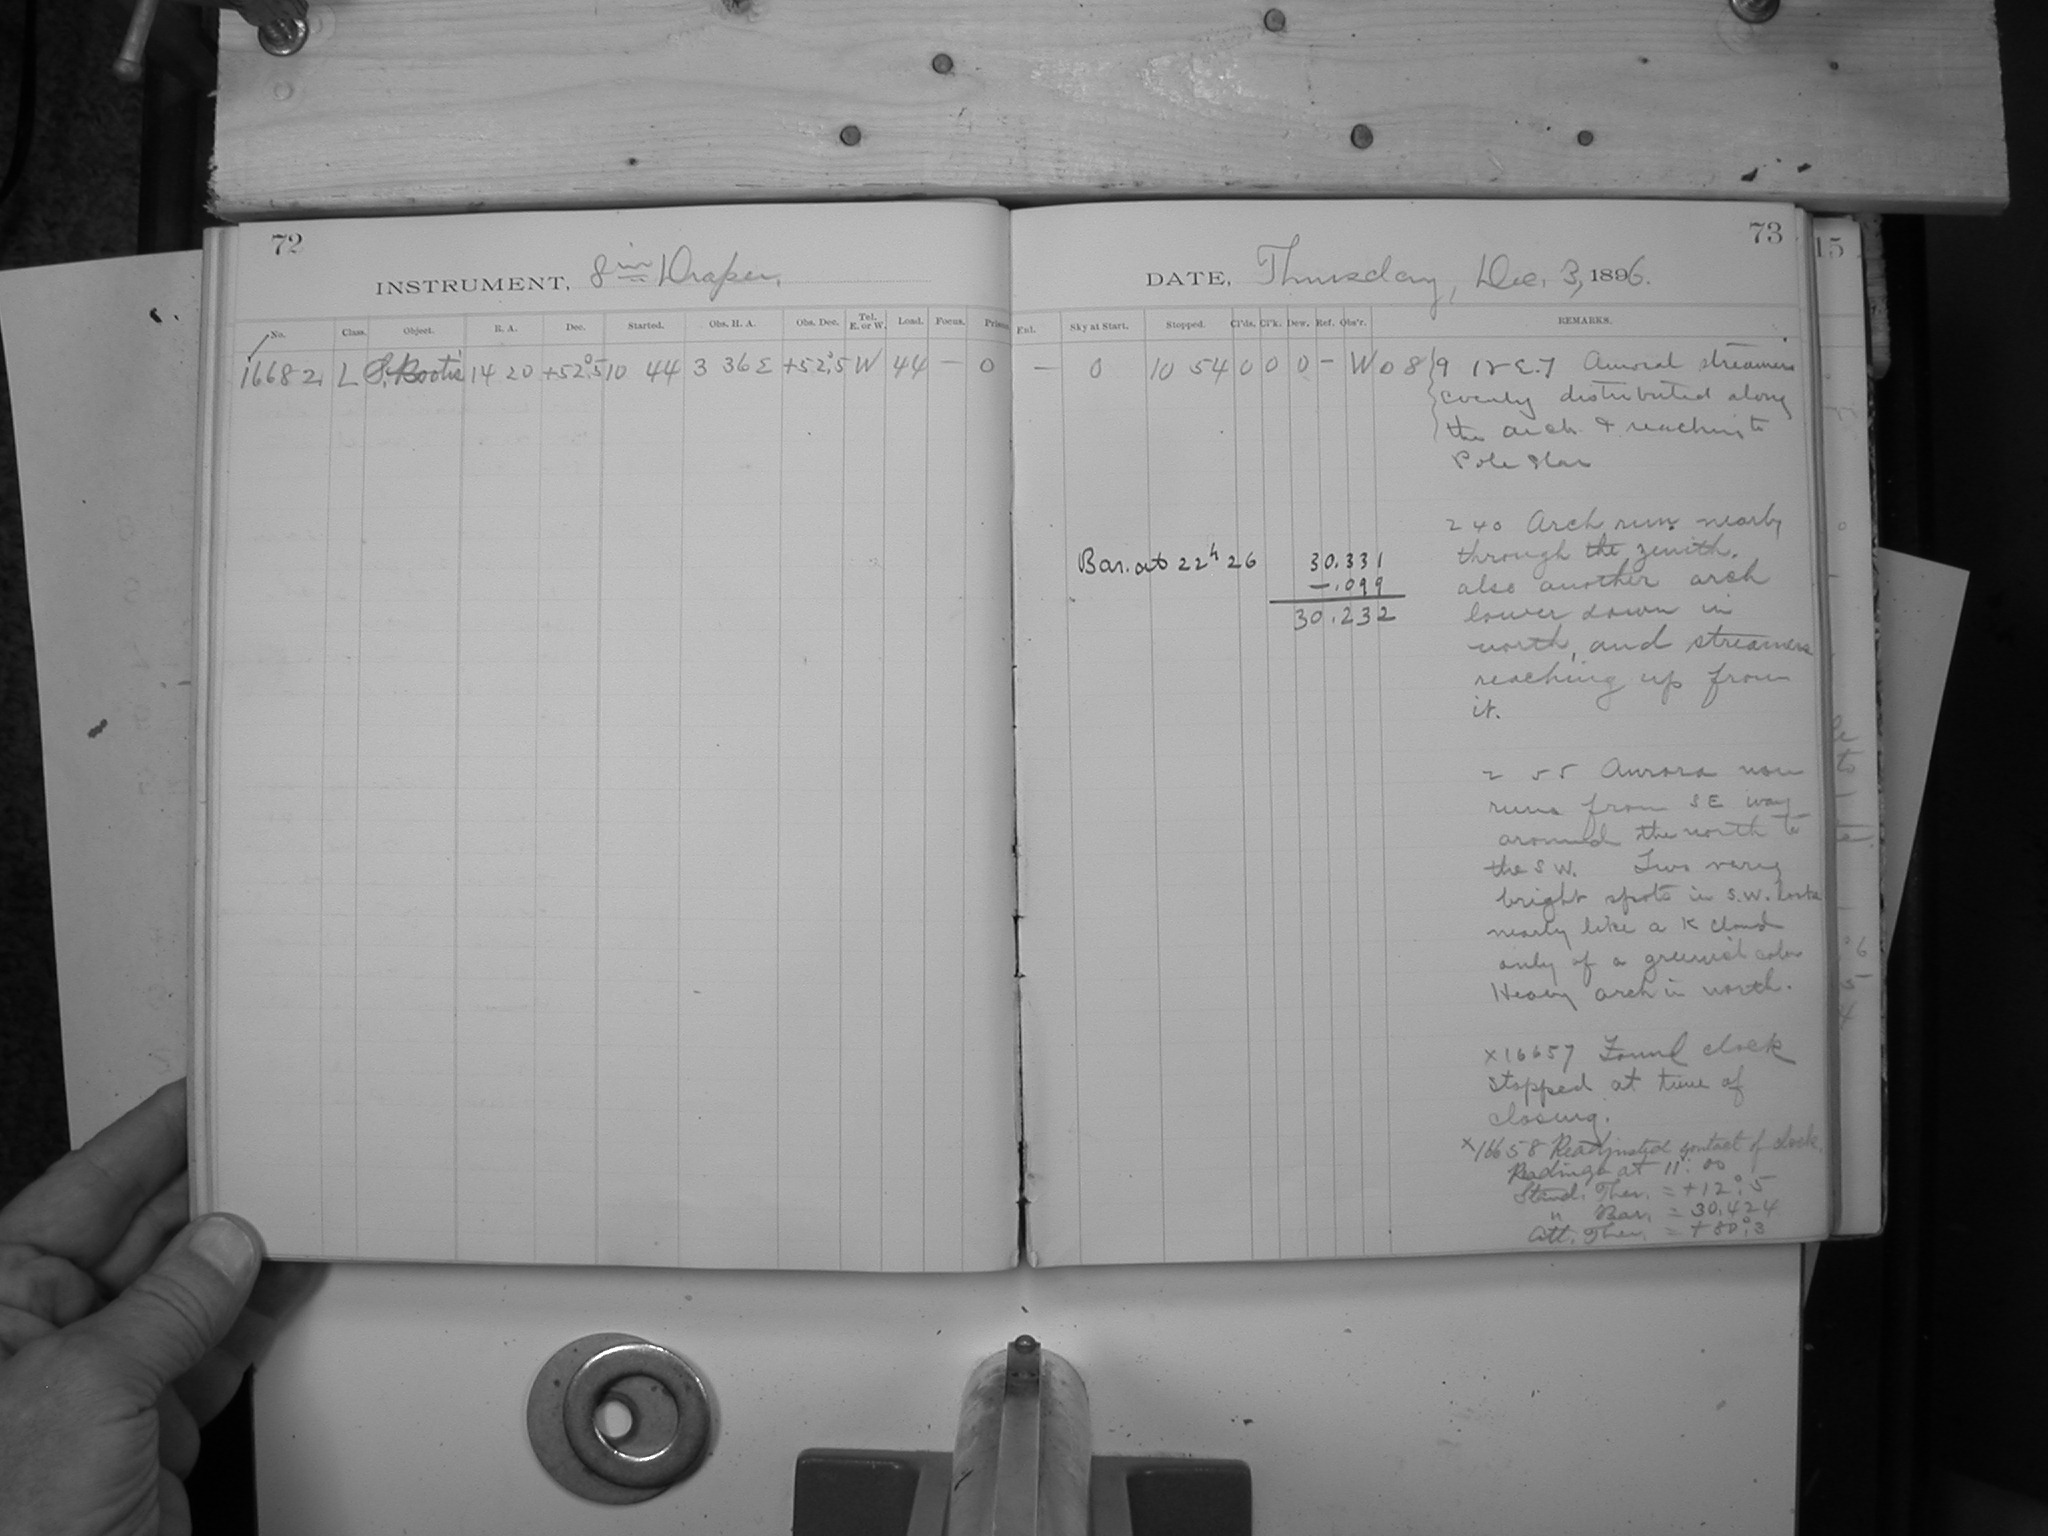 72
INSTRUMENT, 8 in Draper.
No. Class. Object. R. A. Dec. Started. Obs. H. A. Obs. Dec. Tel. E. or W. Load. Focus. Prism
16682 L S. Bootis 14 20 +52°.5 10 44 3 36 E +52°.5 W 44 — 0
73
DATE, Thursday, Dec. 3, 1896.
Ext. Sky at Start. Stopped. Cl'ds. Cl'k. Dew. Ref. Obs'r. REMARKS.
— 0 10 54 0 0 0 - W 08 19 Auroral streamers
evenly distributed along
the arch & reaching to
Pole Star
2 40 Arch runs nearby
through the zenith.
also another arch
lower down in
north, and streamers
reaching up from
it.
Bar. at 22h 26 30.331
—.099
30.232
2 55 Aurora now
runs from SE way
around the north to
the S W. Two very
bright spots in S.W. looks
nearly like a K cloud
only of a greenish color
Heavy arch in north.
x16657 Found clock
stopped at time of
closing.
x16658 Readjusted contact of clock.
Readings at 11:00
Stand. Ther. = +12°.5
" Bar. = 30.424
Att. Ther. = +80°.3
15